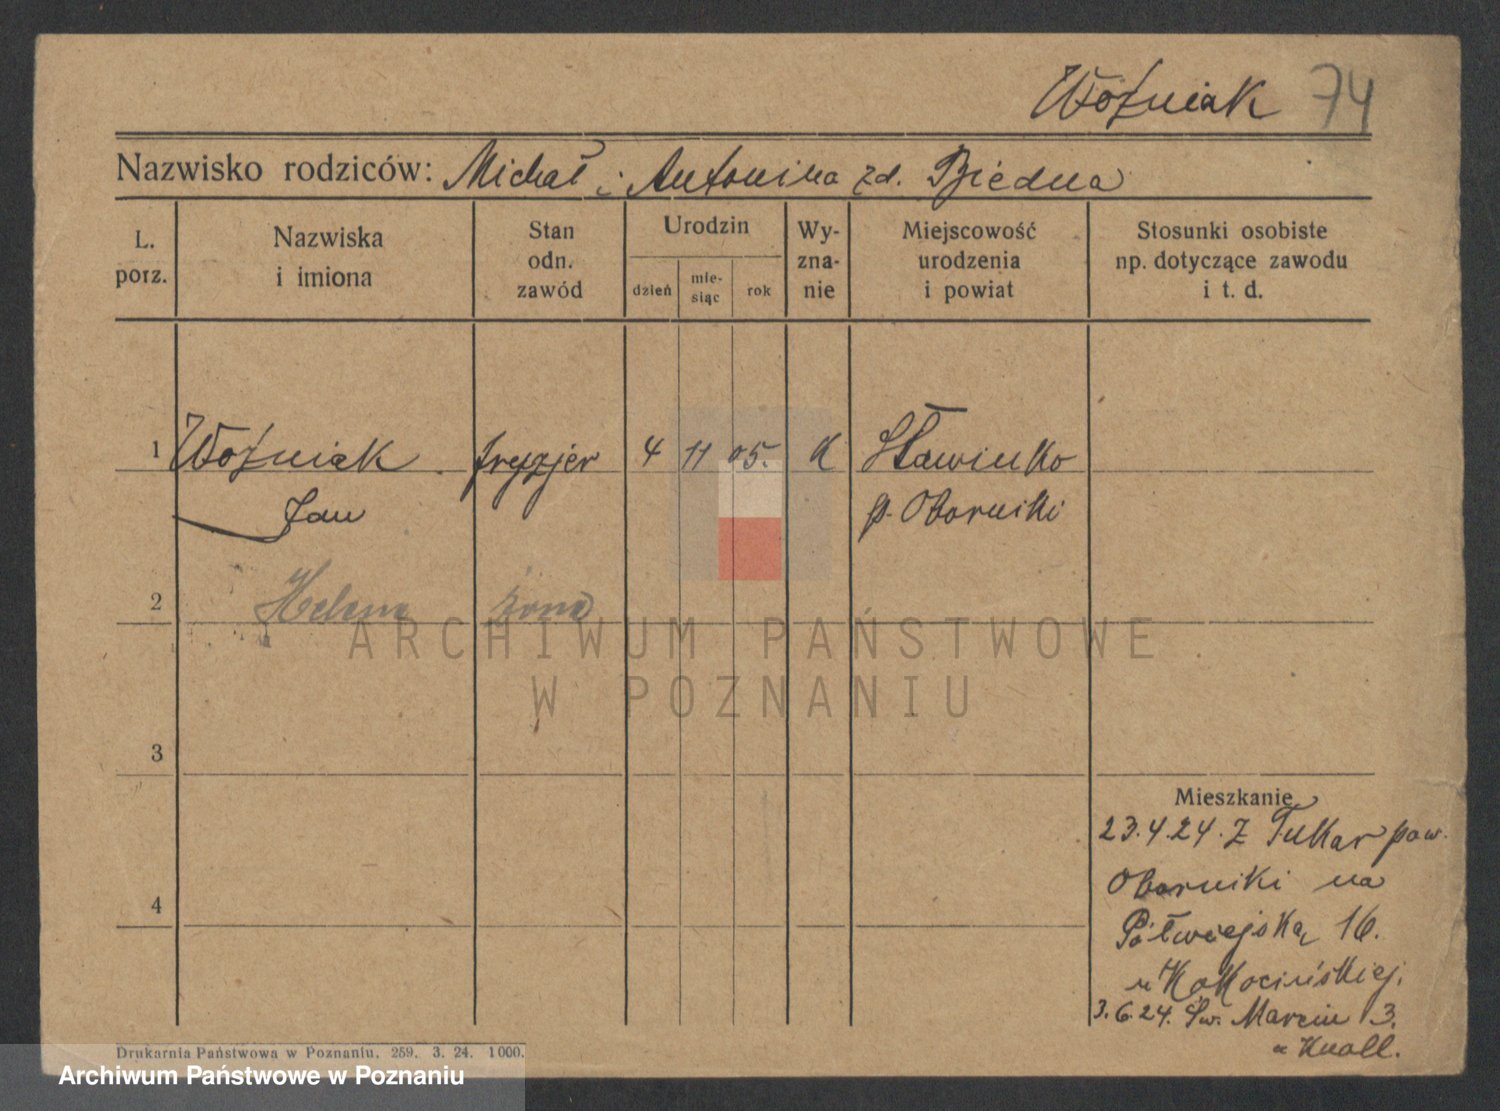 Woźniak 74
Nazwisko rodziców: Michał i Antonina zd. Biedna
L.
porz.
Nazwiska
i imiona
Stan
odn.
zawód
Urodzin
dzień
mie-
siąc
rok
Wy-
zna-
nie
Miejscowość
urodzenia
i powiat
Stosunki osobiste
np. dotyczące zawodu
i t. d.
1 Woźniak fryzjer 4 11 05. K Sławinko
Jan p. Oborniki
2 Helena żona
ARCHIWUM PAŃSTWOWE
W POZNANIU
3
Mieszkanie
23.4.24. Z Tukar pow.
Oborniki na
4
Półwiejską 16.
u Kokocińskiej.
3.6.24. Św. Marcin 13.
u Knoll.
Drukarnia Państwowa w Poznaniu. 259. 3. 24. 1000.
Archiwum Państwowe w Poznaniu